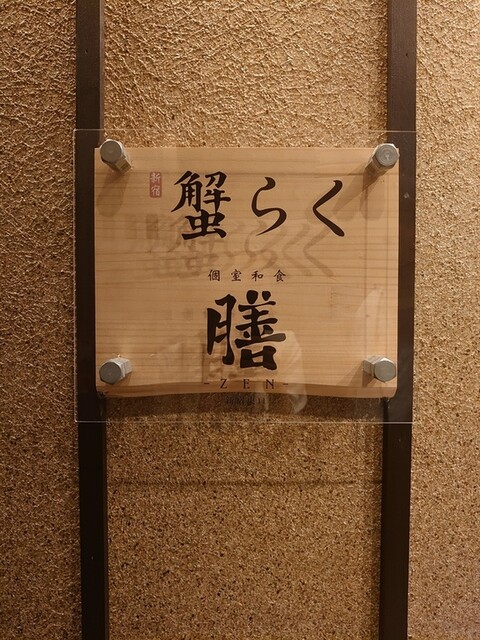 新宿
蟹らく
個室和食
膳
-ZEN-